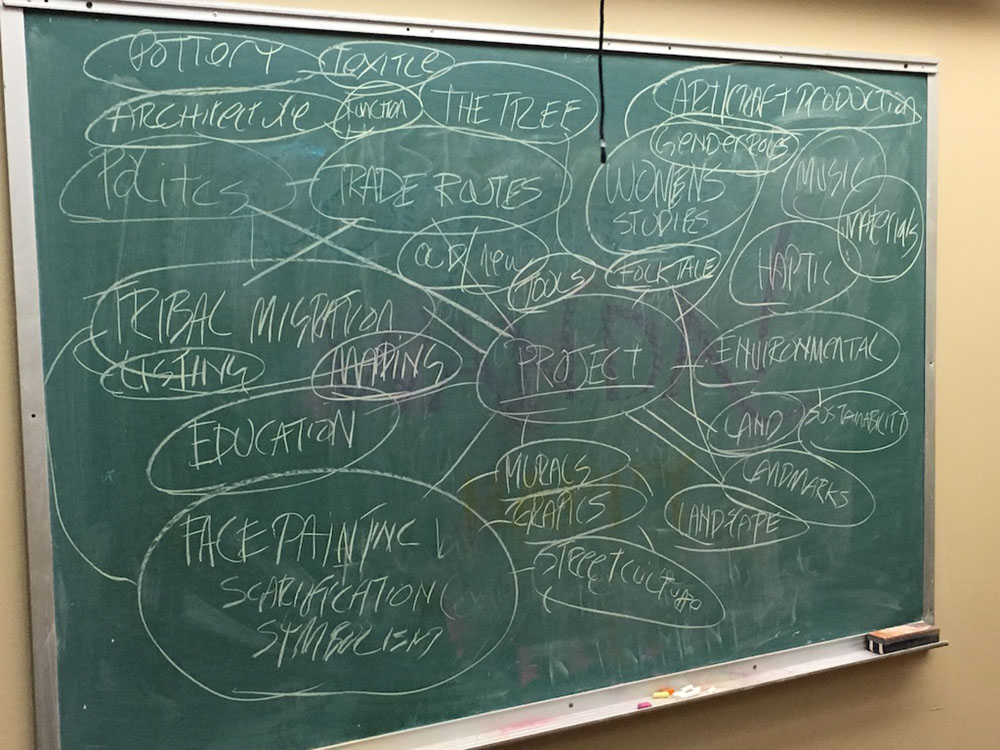 POTTERY
TEXITLE
ARCHITECTURE
FUNCTION
THE TREE
ART/CRAFT PRODUCTION
GENDER ROLES
POLITCS
TRADE ROUTES
WOMENS
STUDIES
MUSIC
MATERIALS
OLD/new
TOOLS
FOLKTALE
HAPTIC
TRIBAL MIGRATION
LISTING
MAPING
PROJECT
ENVIRONMENTAL
EDUCATION
LAND
SUSTAINABILITY
MURALS
GRAFICS
LANDMARKS
LANDSCAPE
FACE PAINTING
SCARIFICATION
SYMBOLISM
STREET CULTURE